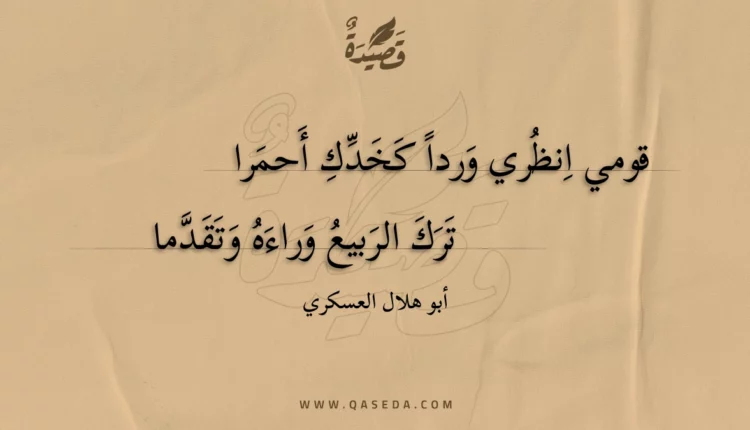 قَصِيدَةٌ
قومي اِنظُري وَرداً كَخَدِّكِ أَحمَرا
تَرَكَ الرَبيعُ وَراءَهُ وَتَقَدَّما
أبو هلال العسكري
WWW.QASEDA.COM